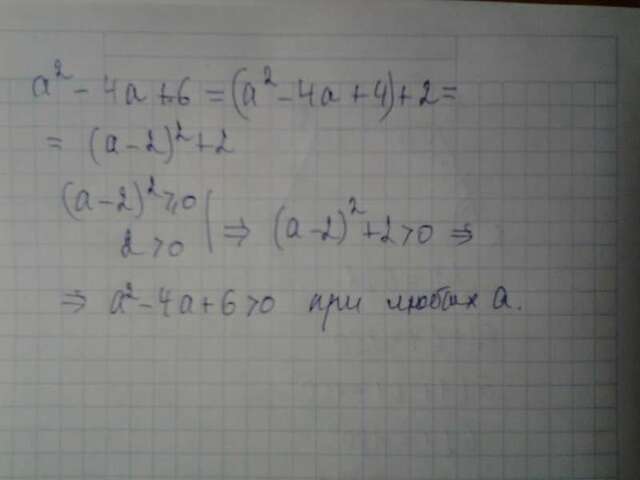 a² - 4a + 6 = (a² - 4a + 4) + 2 =
= (a - 2)² + 2
(a - 2)² ≥ 0
2 > 0 | ⇒ (a - 2)² + 2 > 0 ⇒
⇒ a² - 4a + 6 > 0 при любых a.